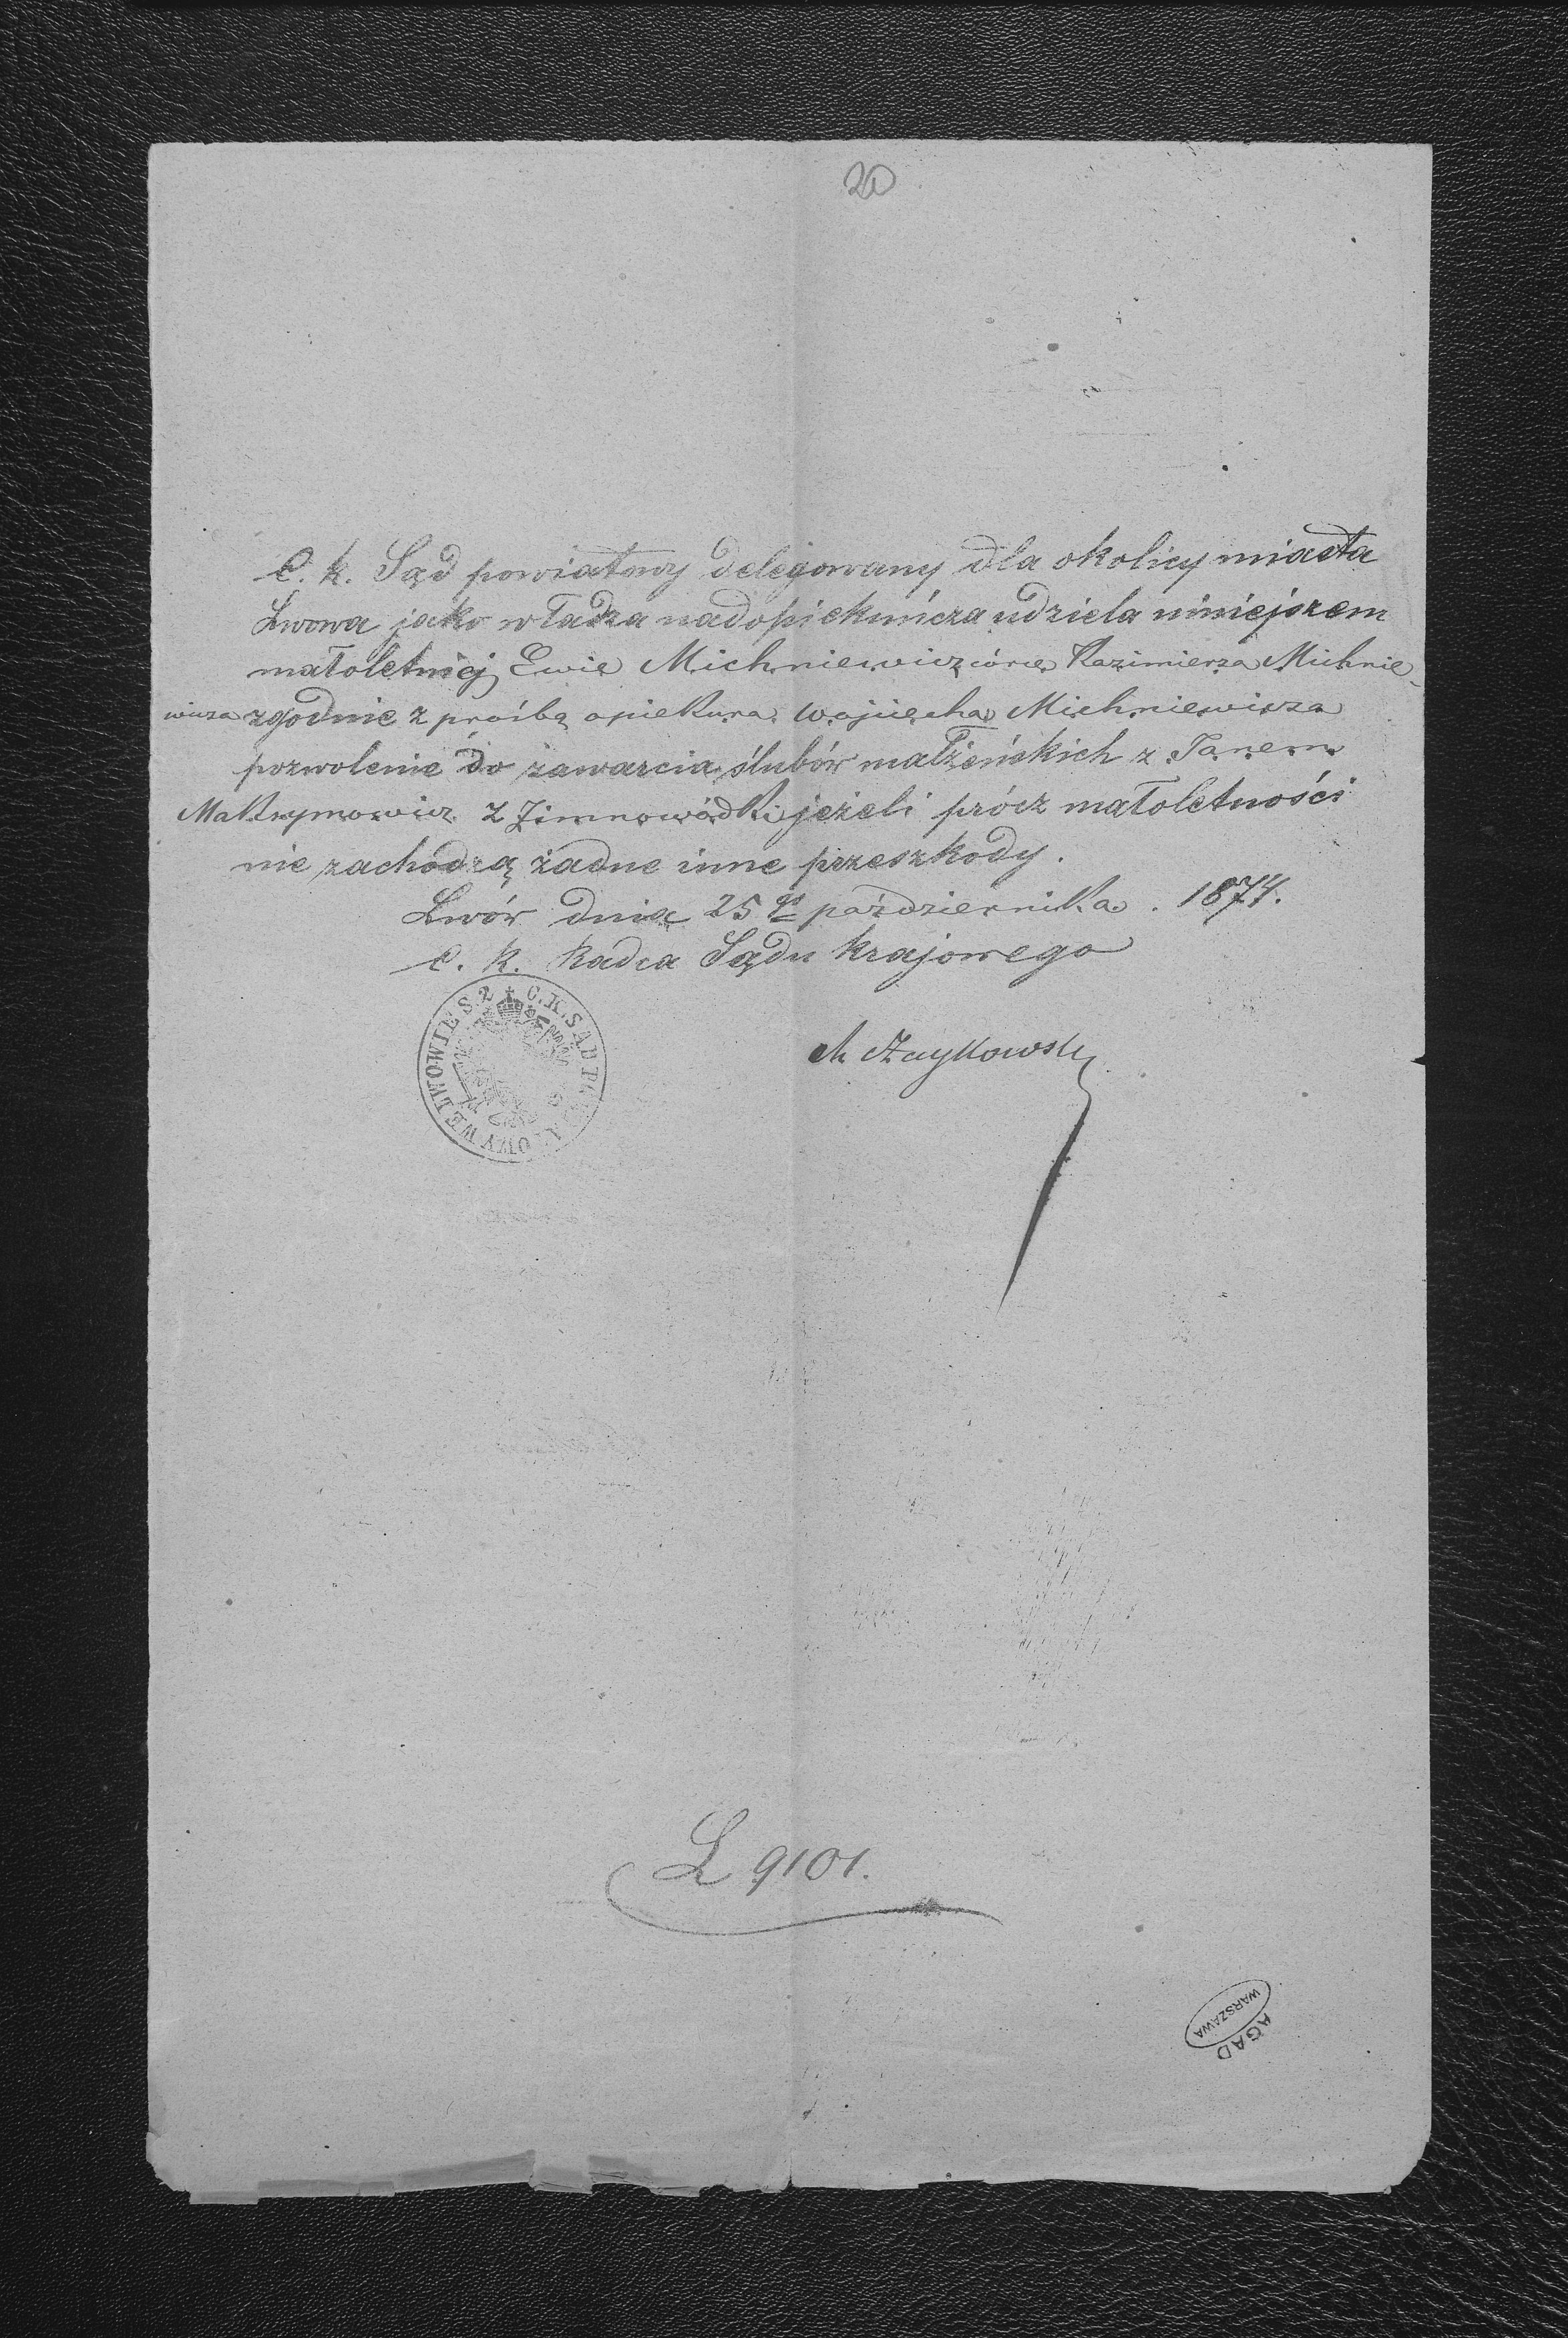 20
C. k. Sąd powiatowy delegowany dla okolicy miasta
Lwowa jako władza nadopiekuńcza udziela niniejszem
małoletniej Ewie Michniewicz córce Kazimierza Michnie-
wicza zgodnie z prośbą opiekuna Wojciecha Michniewicza
pozwolenie do zawarcia ślubów małżeńskich z Janem
Maksymowicz z Zimnowódki jeżeli prócz małoletności
nie zachodzą żadne inne przeszkody.
Lwów dnia 25go października . 1874.
C. k. Radca Sądu krajowego
L 9101.
AGAD
WARSZAWA